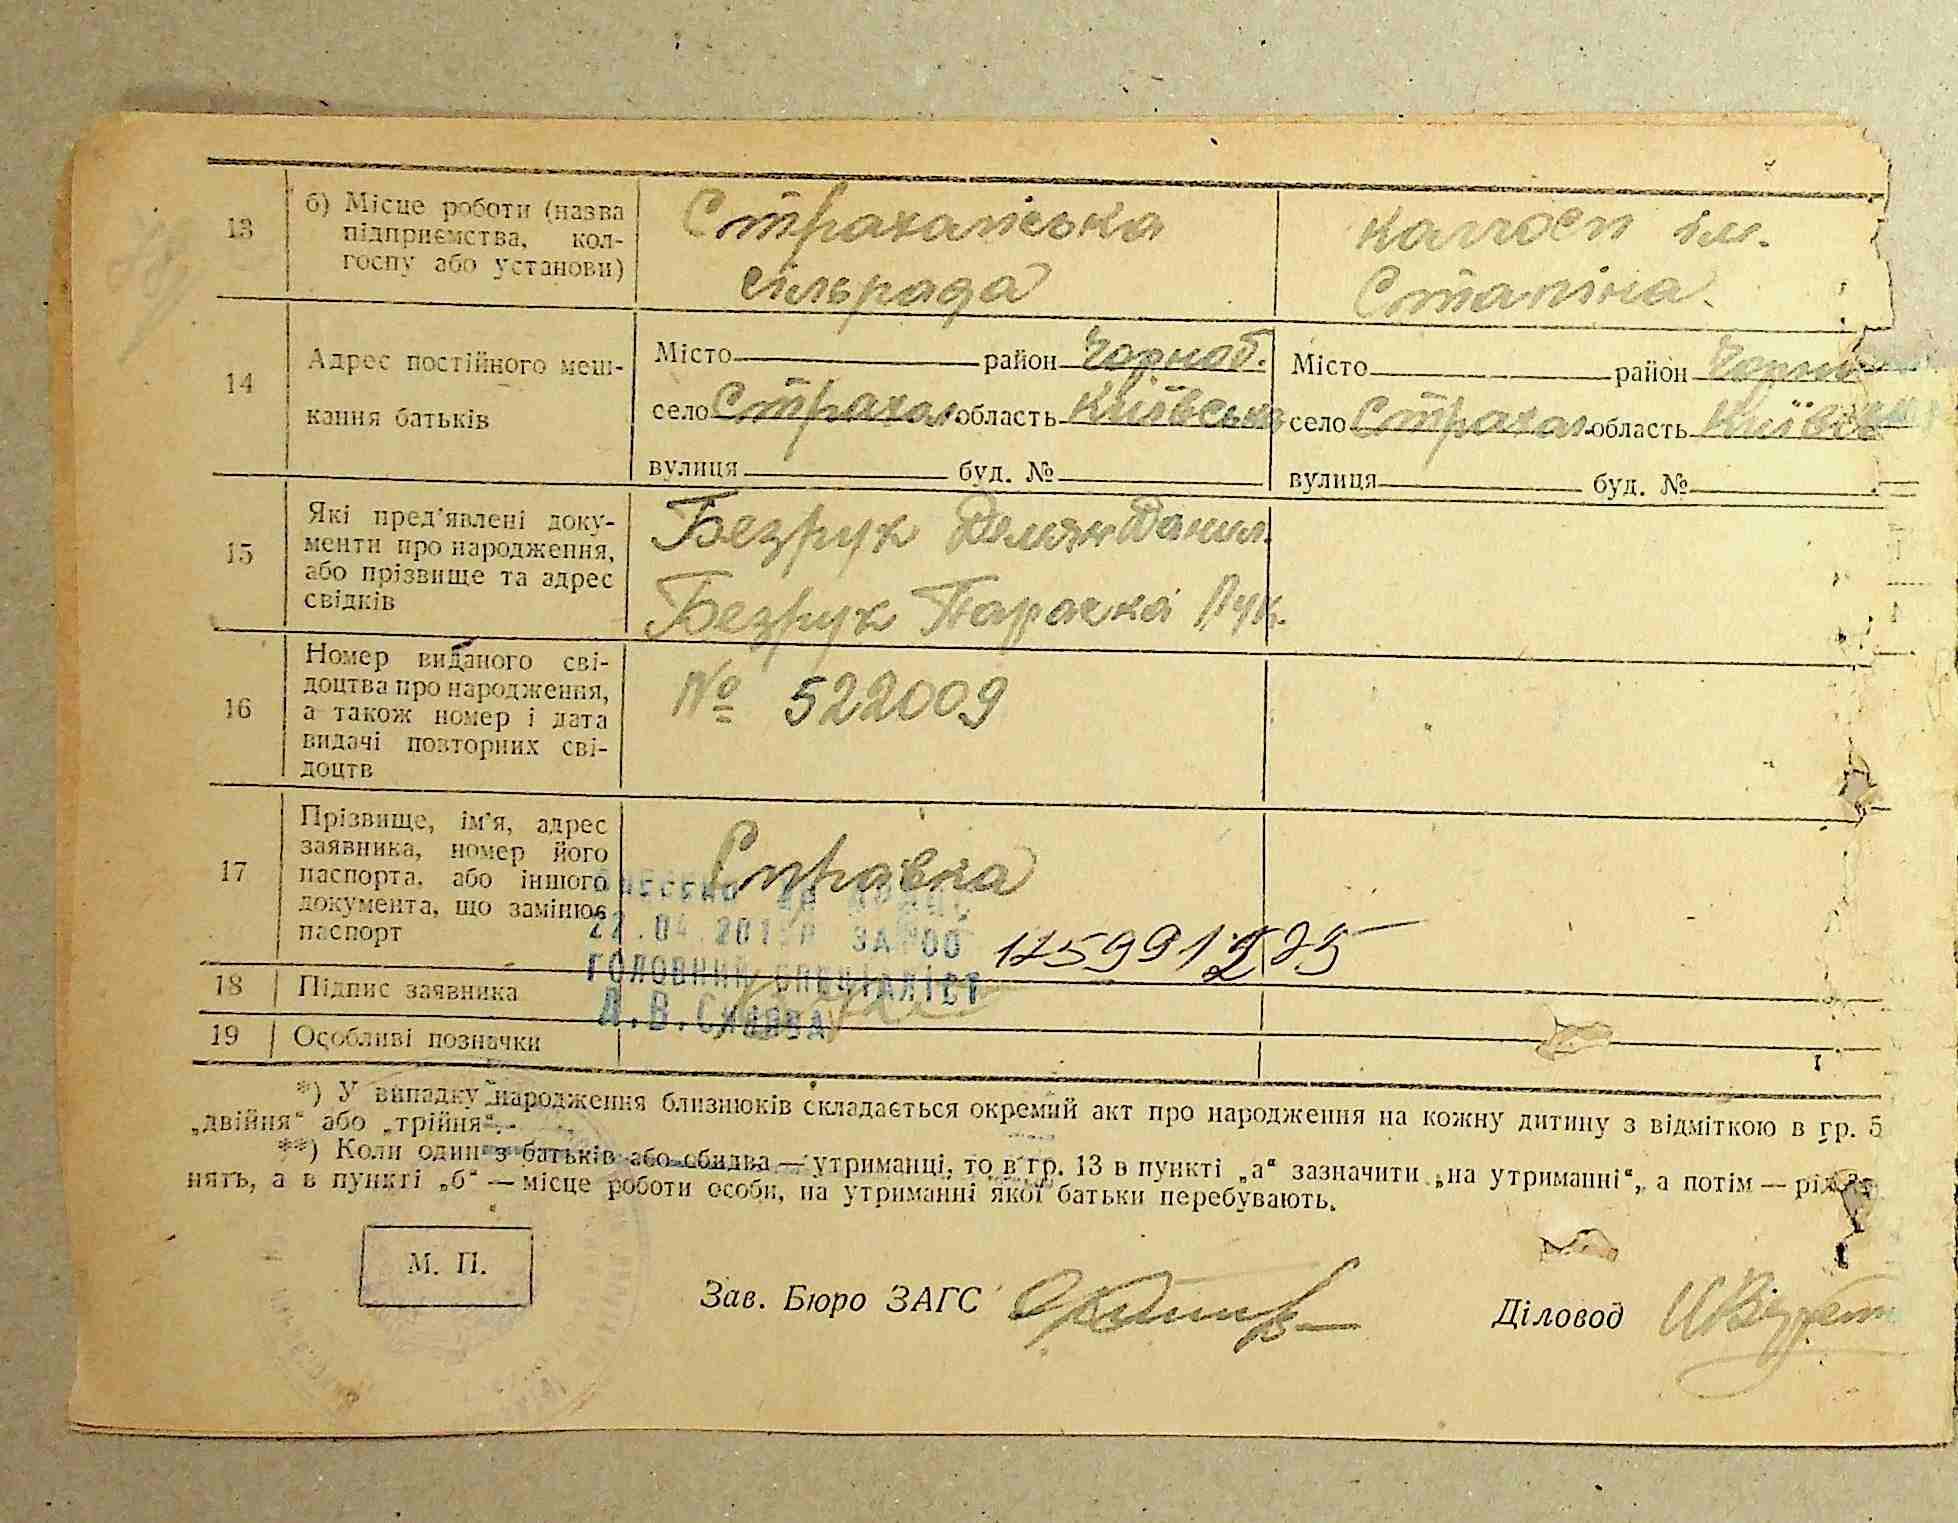 13
б) Місце роботи (назва
підприємства, кол-
госпу або установи)
Страхаліська
сільрада
колгосп ім.
Сталіна.
14
Адрес постійного меш-
кання батьків
Місто район Чорноб.
село Страхол. область Київська
вулиця буд. №
Місто район Чорно
село Страхол. область Київсь
вулиця буд. №
15
Які пред'явлені доку-
менти про народження,
або прізвище та адрес
свідків
Безрук Демян Данил.
Безрук Параска Лук.
16
Номер виданого сві-
доцтва про народження,
а також номер і дата
видачі повторних сві-
доцтв
№ 522009
17
Прізвище, ім'я, адрес
заявника, номер його
паспорта, або іншого
документа, що замінює
паспорт
Справка
22.04.201
ГОЛОВНИЙ СПЕЦІАЛІСТ
18
Підпис заявника
19
Особливі позначки
*) У випадку народження близнюків складається окремий акт про народження на кожну дитину з відміткою в гр. 5
„двійня“ або „трійня“.
**) Коли один з батьків або обидва — утриманці, то в гр. 13 в пункті „а“ зазначити „на утриманні“, а потім — рід за
нять, а в пункті „б“ — місце роботи особи, на утриманні якої батьки перебувають.
М. П.
Зав. Бюро ЗАГС
Діловод